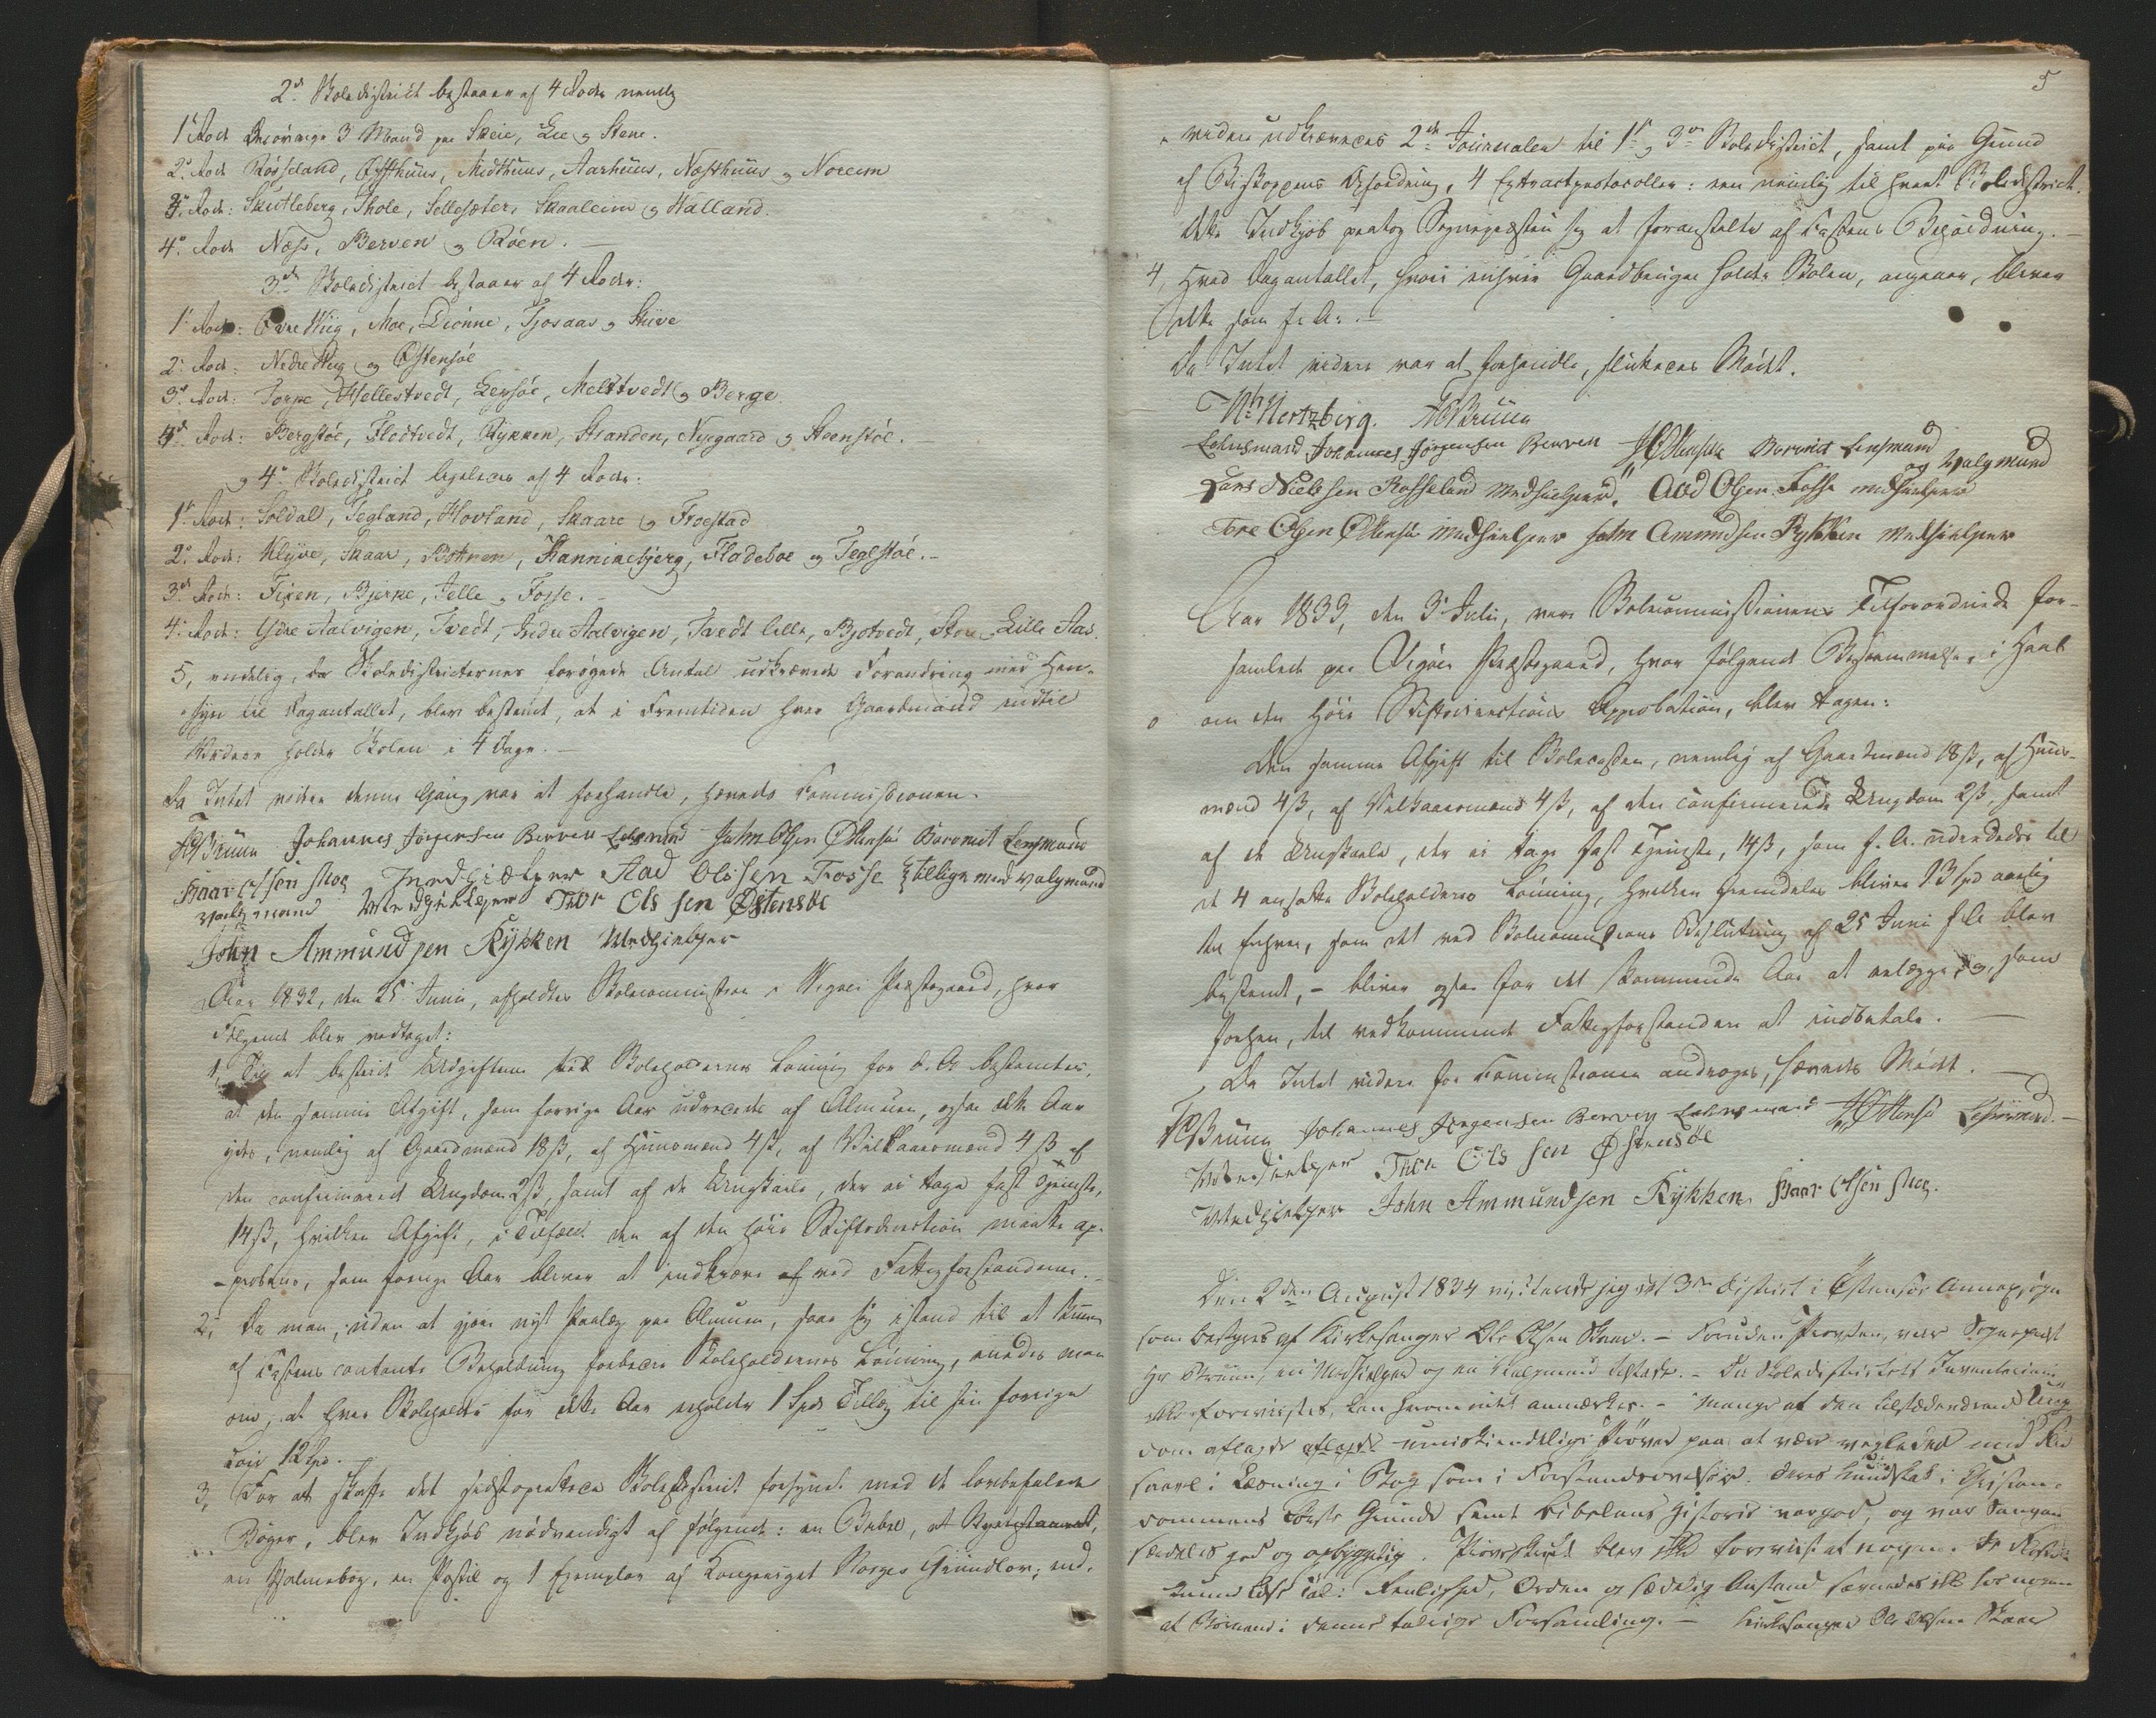 2d Skoledistrict bestaaer af 4 Roder nemlig
1te Rode Øvrige 3 Mænd paa Skeie, Lie og Stene.
2d Rode Røsseland, Øfsthuus, Midthuus, Aarhuus, Næsthuus og Noreim
3d Rode: Skutleberg, Thole, Sellesæter, Skaaleim og Halland.
4de Rode Næss, Berven og Røen. —
3die Skoledistrict bestaaer af 4 Roder:
1te Rode: Øvre Wiig, Moe, Diønne, Tjosaas og Skive
2d Rode: Nedre Wiig og Østensøe
3d Rode: Torpe, Hellestvedt, Lersøe, Melstvedt og Berge.
4de Rode: Bergstøe, Flodtvedt, Rykken, Stranden, Nyegaard og Steenstøe.
og 4de Skoledistrict ligeledes af 4 Roder:
1te Rode: Soldal, Tegland, Hovland, Skaare og Froestad
2d Rode: Klyve, Skaar, Botnen, Kanninebjerg, Fladebøe og Teglstøe. -
3d Rode: Fixen, Bjerke, Jelle og Fosse. -
4de Rode: Ydre Aalvigen, Tvedt, Indre Aalvigen, Tvedt lille, Bjotvedt, Store og Lille Aas.
5, endelig, da Skoledistricternes forøgede Antal udkrævede Forandring med Hen-
syn til Dagantallet, blev bestemt, at i Fremtiden hver Gaardmand indtil
Videre holder Skolen i 4 Dage. —
Da Intet videre denne Gang var at forhandle, hævedes Commissionen.
Bruun Johannes Jørgensen Berven Lehnsmand John Olsen Østensøe Børomit Lensmand
Haar Olsen Moe Medhiælper Aad Olssen Fosse tillige med valgmænd
valgmand Medhielper Thor Ols sen Østensøe
John Ammundsen Rykken Medhielper
Aar 1832, den 25 Junii, afholdtes Skolecommission i Vigøer Præstegaard, hvor
Følgende blev vedtaget:
1, Til at bestride Udgifterne ved Skoleholdernes Lønning for d. A. bestemtes,
at den samme Afgift, som forrige Aar udredede af Almuen, ogsaa dette Aar
ydes, nemlig af Gaardmænd 18 ß, af Huusmænd 4 ß, af Vilkaarsmænd 4 ß af
den confirmerede Ungdom 2 ß, samt af de Ungkarle, der ei tage fast Tjeneste,
14 ß, hvilken Afgift, i Tilfælde den af den høie Stiftsdirection maatte ap-
-proberes, som forrige Aar bliver at indkræve af ved Fattigforstanderne. -
2, Da man, uden at gjøre nyt Paalæg paa Almuen, saae sig istand til at kunne
af Cassens contante Beholdning forbedre Skoleholdernes Lønning, enedes man
om, at hver Skoleholder for dette Aar erholder 1 Spd Tillæg til sin forrige
Løn 12 Spd.
3, For at skaffe det sidstoprettede Skoledistrict forsynet med de lovbefalede
Bøger, blev Indkjøb nødvendigt af følgende: en Bibel, et Nyetestament,
en Psalmebog, en Postil og 1 Exemplar af Kongeriget Norges Grundlov; end-
5
- videre udkrævedes 2de Journaler til 1te og 3die Skoledistrict, samt paa Grund
af Biskoppens Befordring, 4 Extractprotocoller: een nemlig til hvert Skoledistrict.
Dette Indkjøb paatog Sognepræsten sig at foranstalte af Cassens Beholdning. —
4, Hvad Dagantallet, hvori enhver Gaardbruger holder Skolen, angaaer, bliver
dette som f. A. —
Da Intet videre var at forhandle, sluttedes Mødet.
Nb Hertzberg. Bruun
Lehnsmand Johannes Jørgensen Berven JOØstensøe Børomit Lensmand
og Valgmand
Lars Nielssen Rosseland Medhielper, Aad Olsen Fosse medhielper
Tore Olsen Østensøe Medhielper John Amundsen Rykken Medhielper
Aar 1833, den 3d Julii, vare Skolecommissionens Tilforordnede for-
samlede paa Vigøer Præstegaard, hvor følgende Bestemmelse, i Haab
om den høie Stiftsdirections Approbation, blev tagen:
Den samme Afgift til Skolecassen, nemlig af Gaardmænd 18 ß, af Huus-
mænd 4 ß, af Vilkaarsmænd 4 ß, af den confirmerede Ungdom 2 ß, samt
af de Ungkarle, der ei tage fast Tjeneste, 14 ß, som f. A. udrededes til
de 4 ansatte Skoleholderes Lønning, hvilken fremdeles bliver 13 Spd aarlig
til Enhver, som det ved Skolecommissions Beslutning af 25 Juni f. A. blev
bestemt, - bliver ogsaa for det kommende Aar at erlægge, og, som
forhen, til vedkommende Fattigforstander at indbetale. —
Da Intet videre for Commissionen androges, hævedes Mødet. —
Bruun Johannes Jørgensen Berven Lehnsmand JOØstensøe Lehnsmand. -
Medhielper Thor Ols sen Østensøe
Medhielper John Ammundsen Rykken Haar Olsen Moe.
Den 2den August 1834 visiterede jeg det 3die District i Østensøe Annexsogn
som bestyres af Kirkesanger Ole Olsen Skaar. - Foruden Provsten, var Sognepræst
Hr Bruun, en Medhielper og en Valgmand tilstæde. - Da Skoledistrictets Inventarium
ikke forevistes, kan herom intet anmærkes. - Mange af den tilstædeværende Ung-
dom aflagde aflagde umiskiendelige Prøver paa at være veiledet med Flid
saavel i Læsning i Bog som i Forstandsøvelser. Deres Kundskab i Christen-
dommens første Grunde samt Bibelens Historie var god, og var Sangen
særdeles god og opbyggelig. Prøveskrift blev ikke foreviist af nogen. De fleste
kunne læse Tal: Renlighed, Orden og sædelig Anstand savnedes ikke hos nogen
af Børnene i denne talrige Forsamling. - Kirkesanger Ole Olsen Skaar